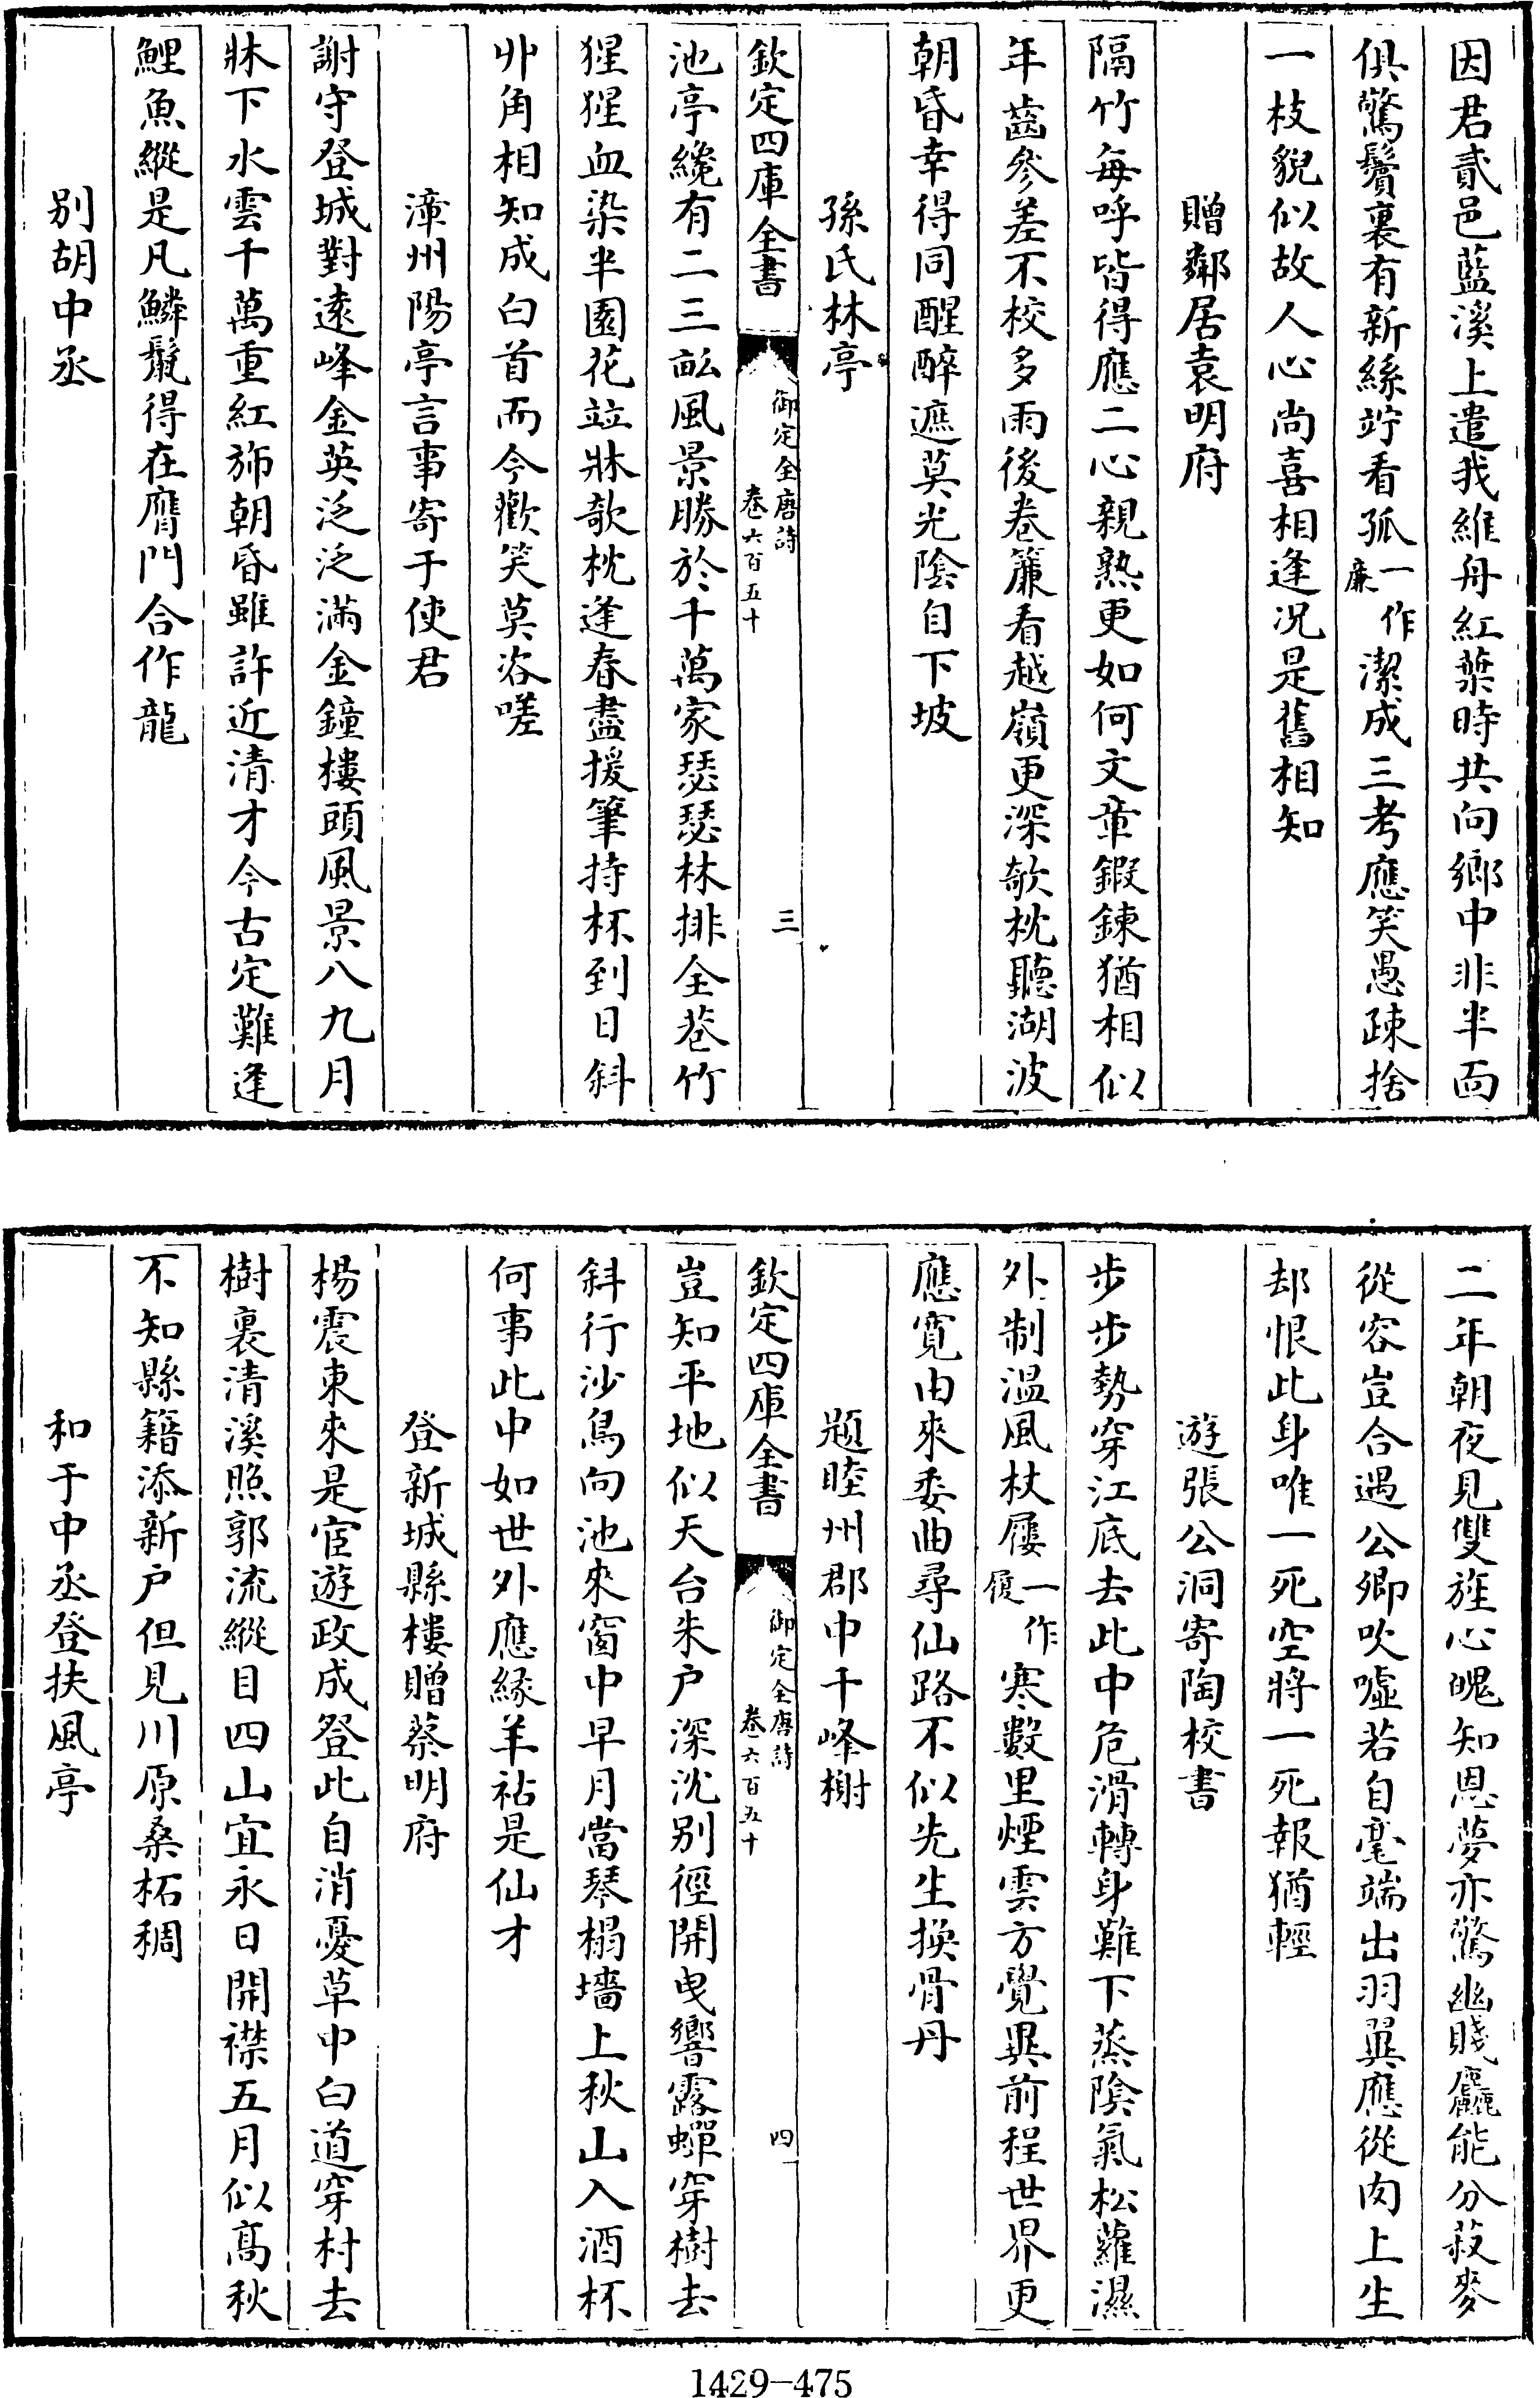 因君貳邑藍溪上遣我維舟紅葉時共向鄉中非半面
俱驚鬢裏有新絲竚看孤一作廉潔成三考應笑愚疎捨
一枝貌似故人心尚喜相逢況是舊相知
贈鄰居袁明府
隔竹每呼皆得應二心親熟更如何文章鍛鍊猶相似
年齒參差不校多雨後卷簾看越嶺更深欹枕聽湖波
朝昏幸得同醒醉遮莫光陰自下坡
孫氏林亭
欽定四庫全書 御定全唐詩 卷六百五十 三
池亭纔有二三畝風景勝於千萬家瑟瑟林排全巷竹
猩猩血染半園花竝牀欹枕逢春盡援筆持杯到日斜
丱角相知成白首而今歡笑莫咨嗟
漳州陽亭言事寄于使君
謝守登城對遠峰金英泛泛滿金鐘樓頭風景八九月
牀下水雲千萬重紅斾朝昏雖許近清才今古定難逢
鯉魚縱是凡鱗鬛得在膺門合作龍
別胡中丞
二年朝夜見雙旌心魄知恩夢亦驚幽賤麤能分菽麥
從容豈合遇公卿吹噓若自毫端出羽翼應從肉上生
却恨此身唯一死空將一死報猶輕
遊張公洞寄陶校書
步步勢穿江底去此中危滑轉身難下蒸陰氣松蘿濕
外制溫風杖屨一作履寒數里煙雲方覺異前程世界更
應寛由來委曲尋仙路不似先生換骨丹
題睦州郡中千峰榭
欽定四庫全書 御定全唐詩 卷六百五十 四
豈知平地似天台朱户深沈別徑開曳響露蟬穿樹去
斜行沙鳥向池來窗中早月當琴榻墻上秋山入酒杯
何事此中如世外應緣羊祜是仙才
登新城縣樓贈蔡明府
楊震東來是宦遊政成登此自消憂草中白道穿村去
樹裏清溪照郭流縱目四山宜永日開襟五月似髙秋
不知縣籍添新户但見川原桑柘稠
和于中丞登扶風亭
1429-475